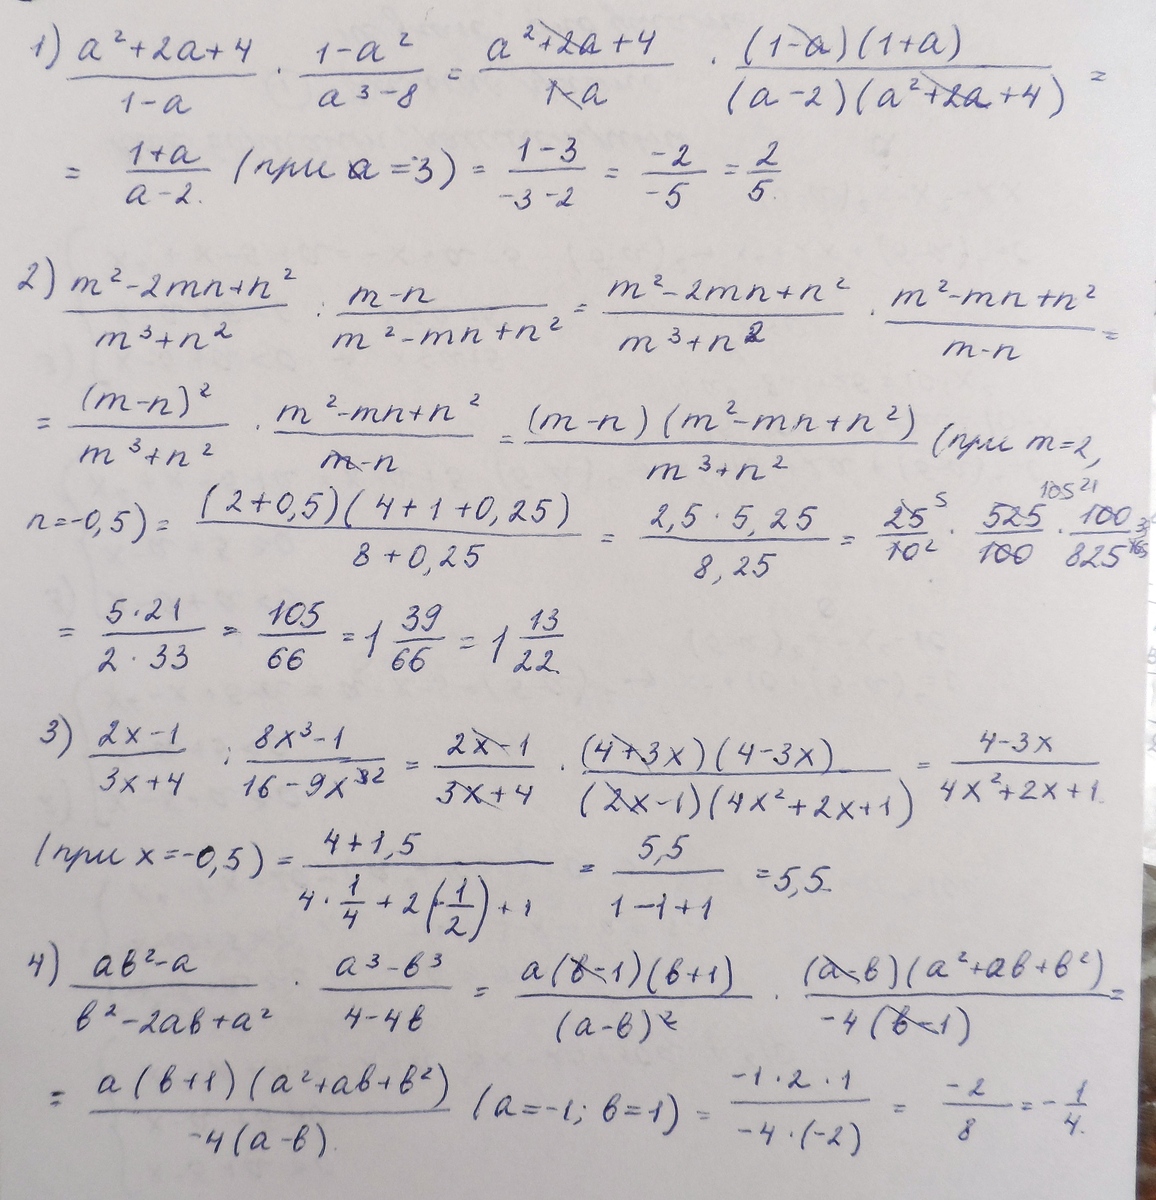 1) (a²+2a+4)/(1-a) · (1-a²)/(a³-8) = (a²+2a+4)/(1-a) · ((1-a)(1+a))/((a-2)(a²+2a+4)) =
= (1+a)/(a-2). (при a=3) = (1-3)/(-3-2) = (-2)/(-5) = 2/5.
2) (m²-2mn+n²)/(m³+n²) : (m-n)/(m²-mn+n²) = (m²-2mn+n²)/(m³+n²) · (m²-mn+n²)/(m-n) =
= (m-n)²/(m³+n²) · (m²-mn+n²)/(m-n) = ((m-n)(m²-mn+n²))/(m³+n²) (при m=2,
n=-0,5) = ((2+0,5)(4+1+0,25))/(8+0,25) = (2,5·5,25)/(8,25) = 25⁵/10² · 525/100 · 100/825 105 21
= (5·21)/(2·33) = 105/66 = 1 39/66 = 1 13/22.
3) (2x-1)/(3x+4) : (8x³-1)/(16-9x²) = (2x-1)/(3x+4) · ((4+3x)(4-3x))/((2x-1)(4x²+2x+1)) = (4-3x)/(4x²+2x+1).
(при x=-0,5) = (4+1,5)/(4·1/4+2(-1/2)+1) = (5,5)/(1-1+1) = 5,5.
4) (aв²-a)/(в²-2aв+a²) · (a³-в³)/(4-4в) = (a(в-1)(в+1))/(a-в)² · ((a-в)(a²+aв+в²))/(-4(в-1)) =
= (a(в+1)(a²+aв+в²))/(-4(a-в)). (a=-1; в=1) = (-1·2·1)/(-4·(-2)) = (-2)/8 = -1/4.